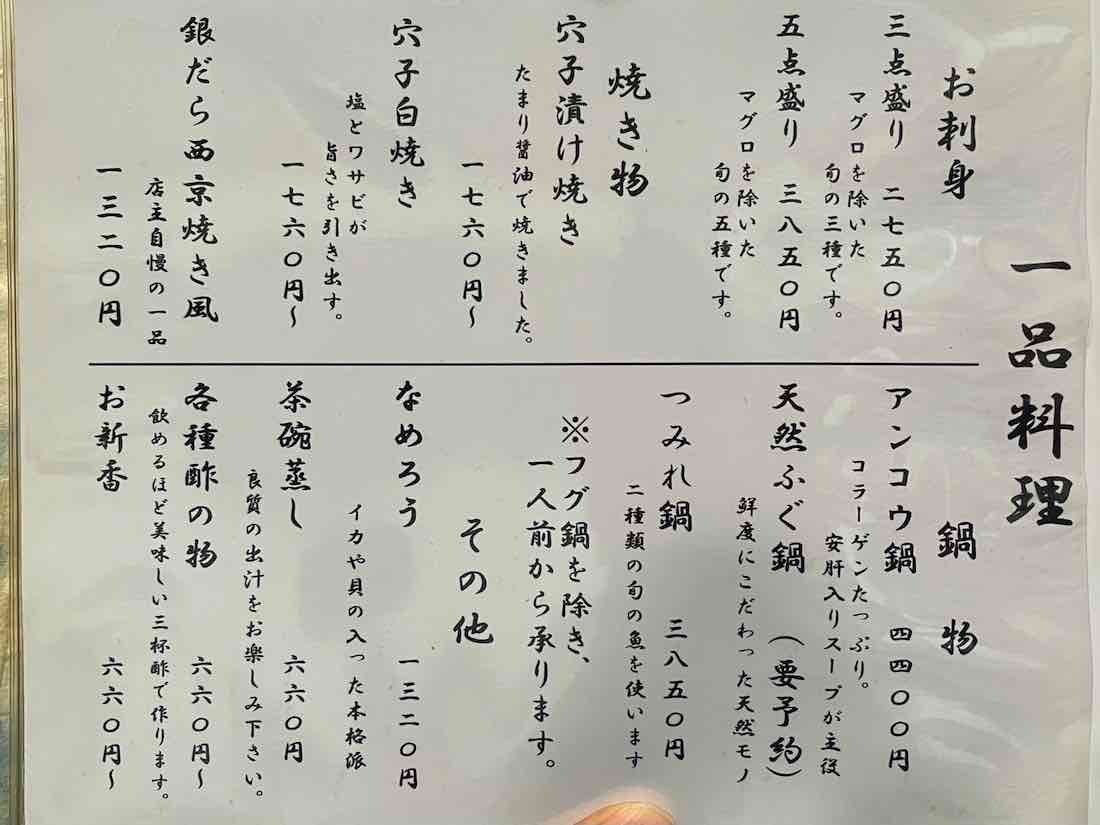 一品料理
お刺身
三点盛り 二七五〇円
マグロを除いた
旬の三種です。
五点盛り 三八五〇円
マグロを除いた
旬の五種です。
焼き物
穴子漬け焼き
たまり醤油で焼きました。
一七六〇円〜
穴子白焼き
塩とワサビが
旨さを引き出す。
一七六〇円〜
銀だら西京焼き風
店主自慢の一品
一三二〇円
鍋物
アンコウ鍋 四四〇〇円
コラーゲンたっぷり。
安肝入りスープが主役
天然ふぐ鍋 (要予約)
鮮度にこだわった天然モノ
つみれ鍋 三八五〇円
二種類の旬の魚を使います
※フグ鍋を除き、
一人前から承ります。
その他
なめろう 一三二〇円
イカや貝の入った本格派
茶碗蒸し 六六〇円
良質の出汁をお楽しみ下さい。
各種酢の物 六六〇円〜
飲めるほど美味しい三杯酢で作ります。
お新香 六六〇円〜